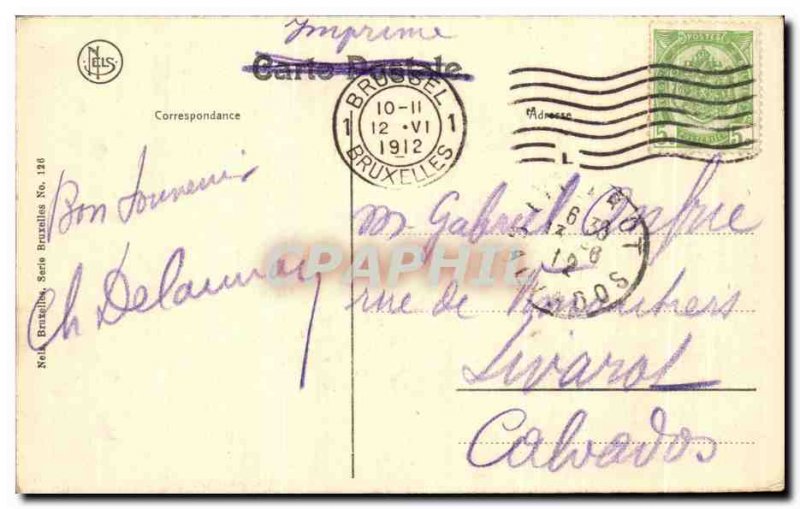 Imprimé
Carte Postale
NELS
Correspondance
Adresse
BRUSSEL
10-11
1 12 · VI 1
1912
BRUXELLES
POSTES
5 5
L
Bon Souvenir
Ch Delaunay
LIVAROT
CALVADOS
CPAPHIL
Mr Gabriel
rue de
Livarot
Calvados
Nels, Bruxelles, Serie Bruxelles No. 126